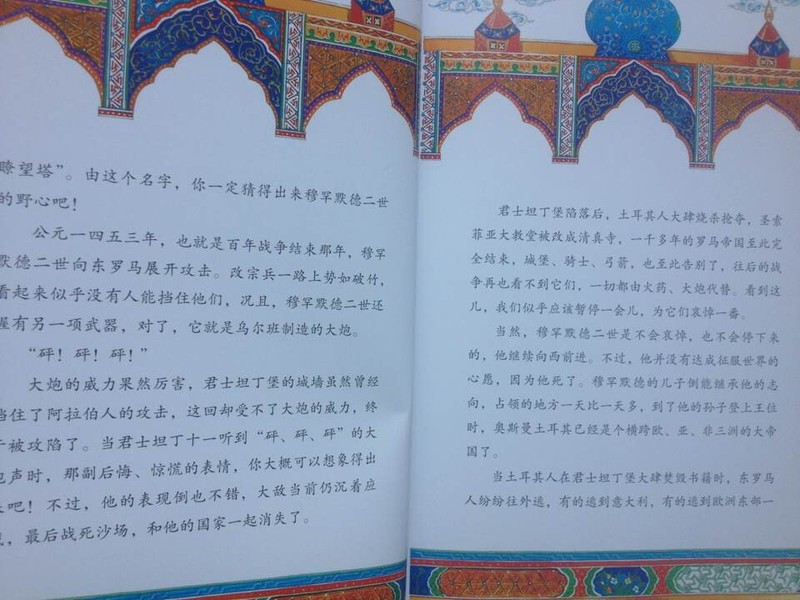 瞭望塔”。由这个名字，你一定猜得出来穆罕默德二世
的野心吧！
公元一四五三年，也就是百年战争结束那年，穆罕
默德二世向东罗马展开攻击。改宗兵一路上势如破竹，
看起来似乎没有人能挡住他们，况且，穆罕默德二世还
握有另一项武器，对了，它就是乌尔班制造的大炮。
“砰！砰！砰！”
大炮的威力果然厉害，君士坦丁堡的城墙虽然曾经
挡住了阿拉伯人的攻击，这回却受不了大炮的威力，终
于被攻陷了。当君士坦丁十一听到“砰、砰、砰”的大
炮声时，那副后悔、惊慌的表情，你大概可以想象得出
来吧！不过，他的表现倒也不错，大敌当前仍沉着应
，最后战死沙场，和他的国家一起消失了。
君士坦丁堡陷落后，土耳其人大肆烧杀抢夺，圣索
菲亚大教堂被改成清真寺，一千多年的罗马帝国至此完
全结束，城堡、骑士、弓箭，也至此告别了，往后的战
争再也看不到它们，一切都由火药、大炮代替。看到这
儿，我们似乎应该暂停一会儿，为它们哀悼一番。
当然，穆罕默德二世是不会哀悼，也不会停下来
的，他继续向西前进。不过，他并没有达成征服世界的
心愿，因为他死了。穆罕默德的儿子倒能继承他的志
向，占领的地方一天比一天多，到了他的孙子登上王位
时，奥斯曼土耳其已经是个横跨欧、亚、非三洲的大帝
国了。
当土耳其人在君士坦丁堡大肆焚毁书籍时，东罗马
人纷纷往外逃，有的逃到意大利，有的逃到欧洲东部一